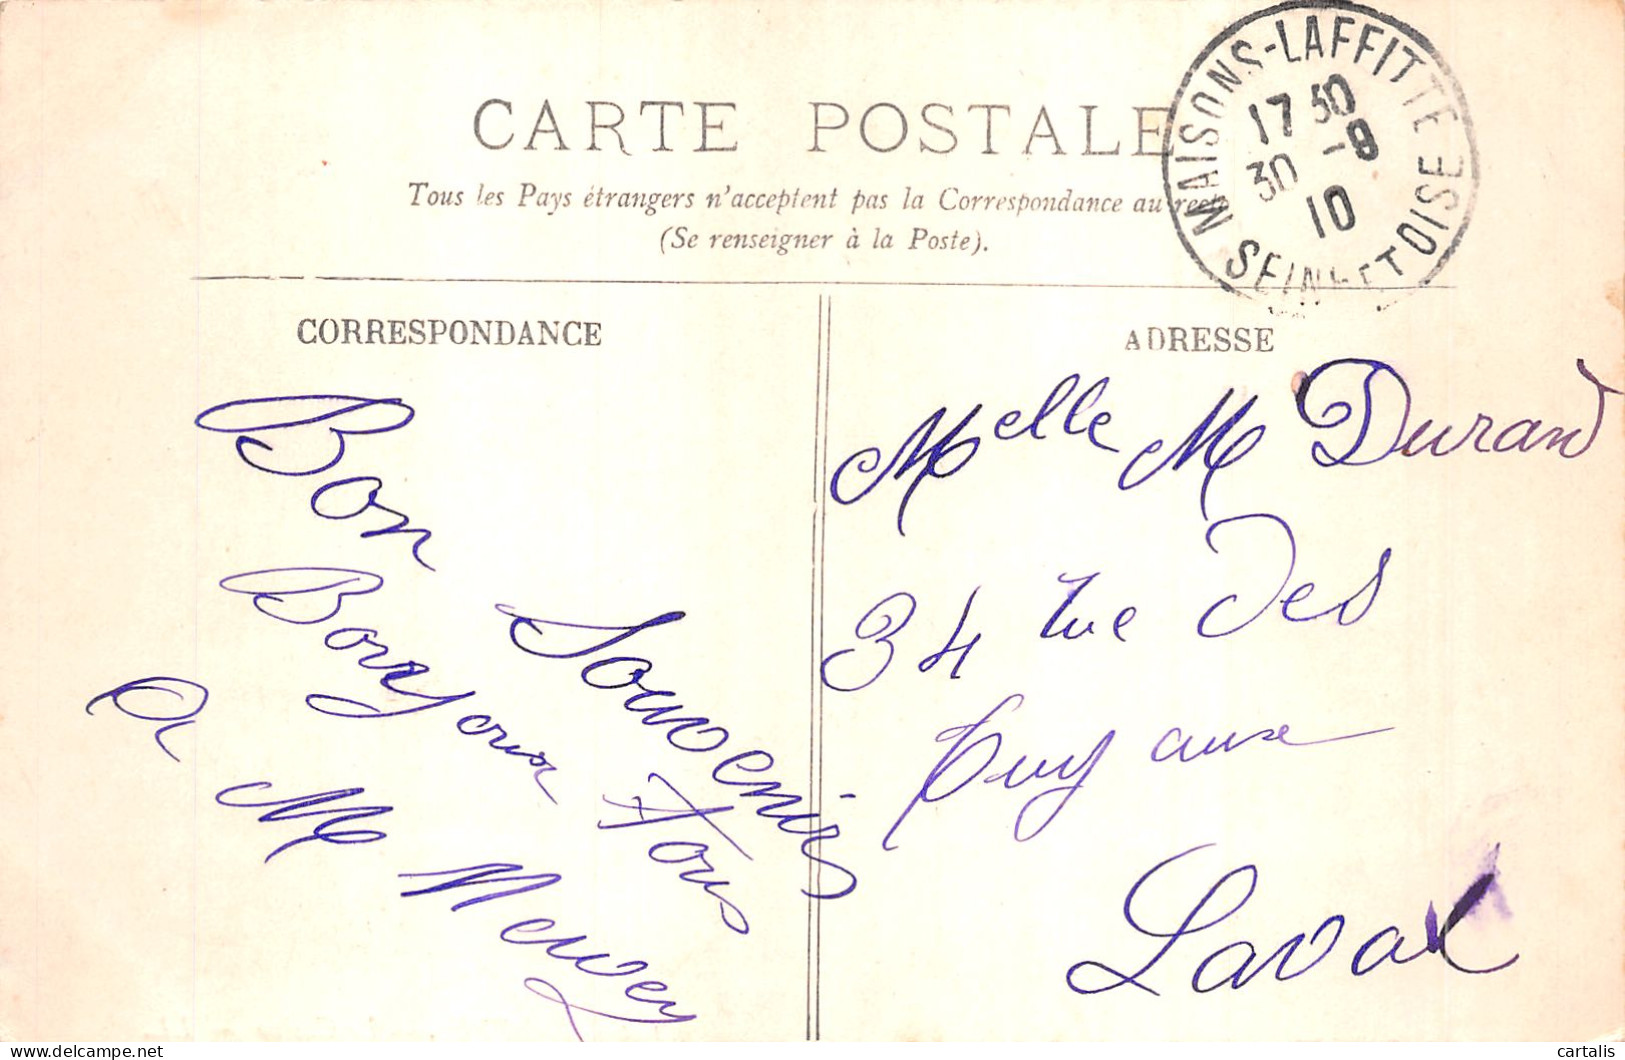 CARTE POSTALE
Tous les Pays étrangers n'acceptent pas la Correspondance au recto
(Se renseigner à la Poste).
MAISONS-LAFFITTE
17 30
30 -8
10
SEINE-ET-OISE
CORRESPONDANCE
Bon Souvenir
Bonjour à Tous
A M
ADRESSE
Melle M Durand
34 rue des
Tuyaux
Laval
delcampe.net
cartalis